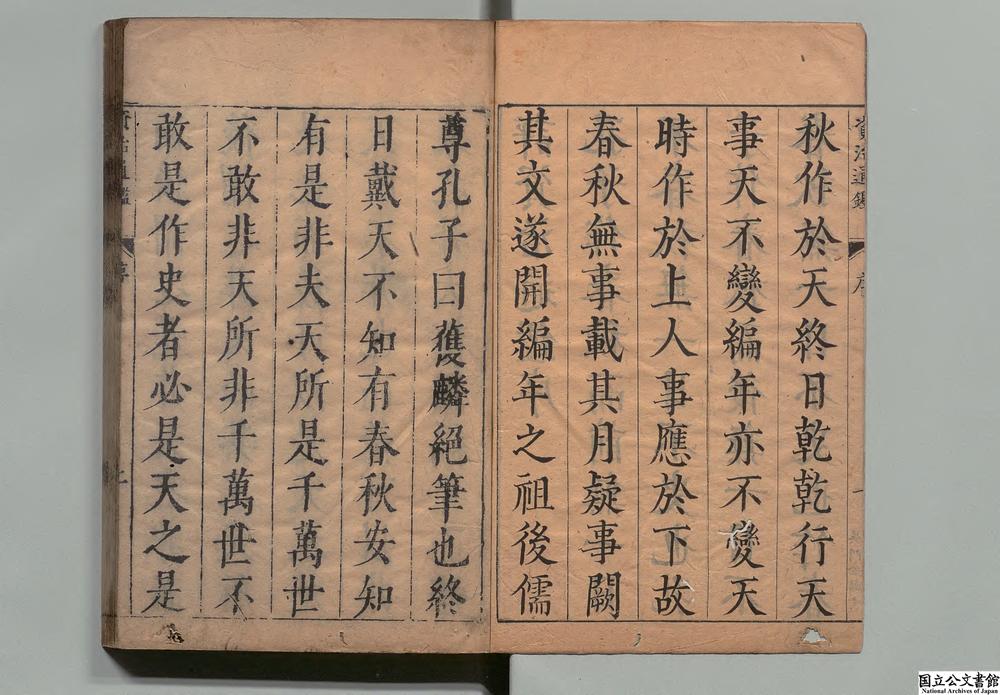 資治通鑑
序
一
秋作於天終日乾乾行天
事天不變編年亦不變天
時作於上人事應於下故
春秋無事載其月疑事闕
其文遂開編年之祖後儒
尊孔子曰獲麟絕筆也終
日戴天不知有春秋安知
有是非夫天所是千萬世
不敢非天所非千萬世不
敢是作史者必是天之是
資治通鑑
国立公文書館
National Archives of Japan